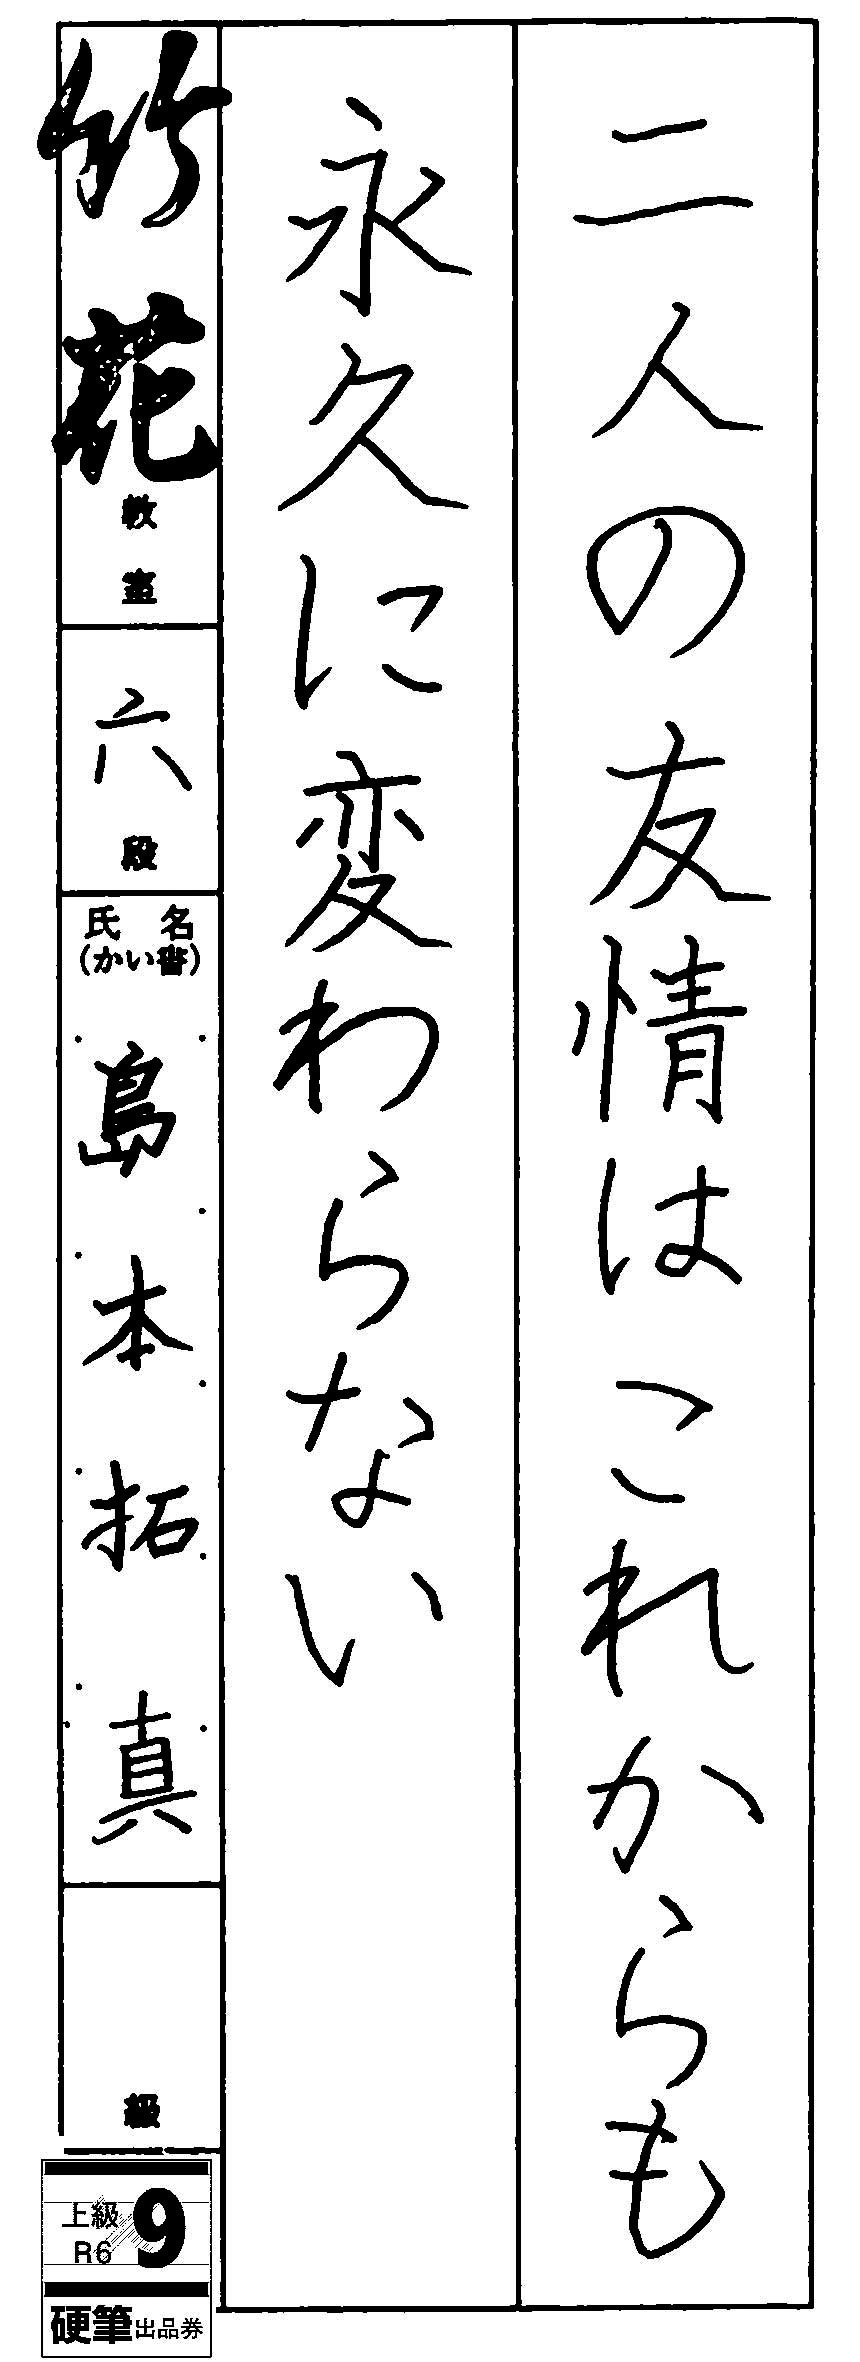 二人の友情はこれからも
永久に変わらない
竹花教室
六段
氏名
(かい書)
島本拓真
級
上級
R6
9
硬筆出品券